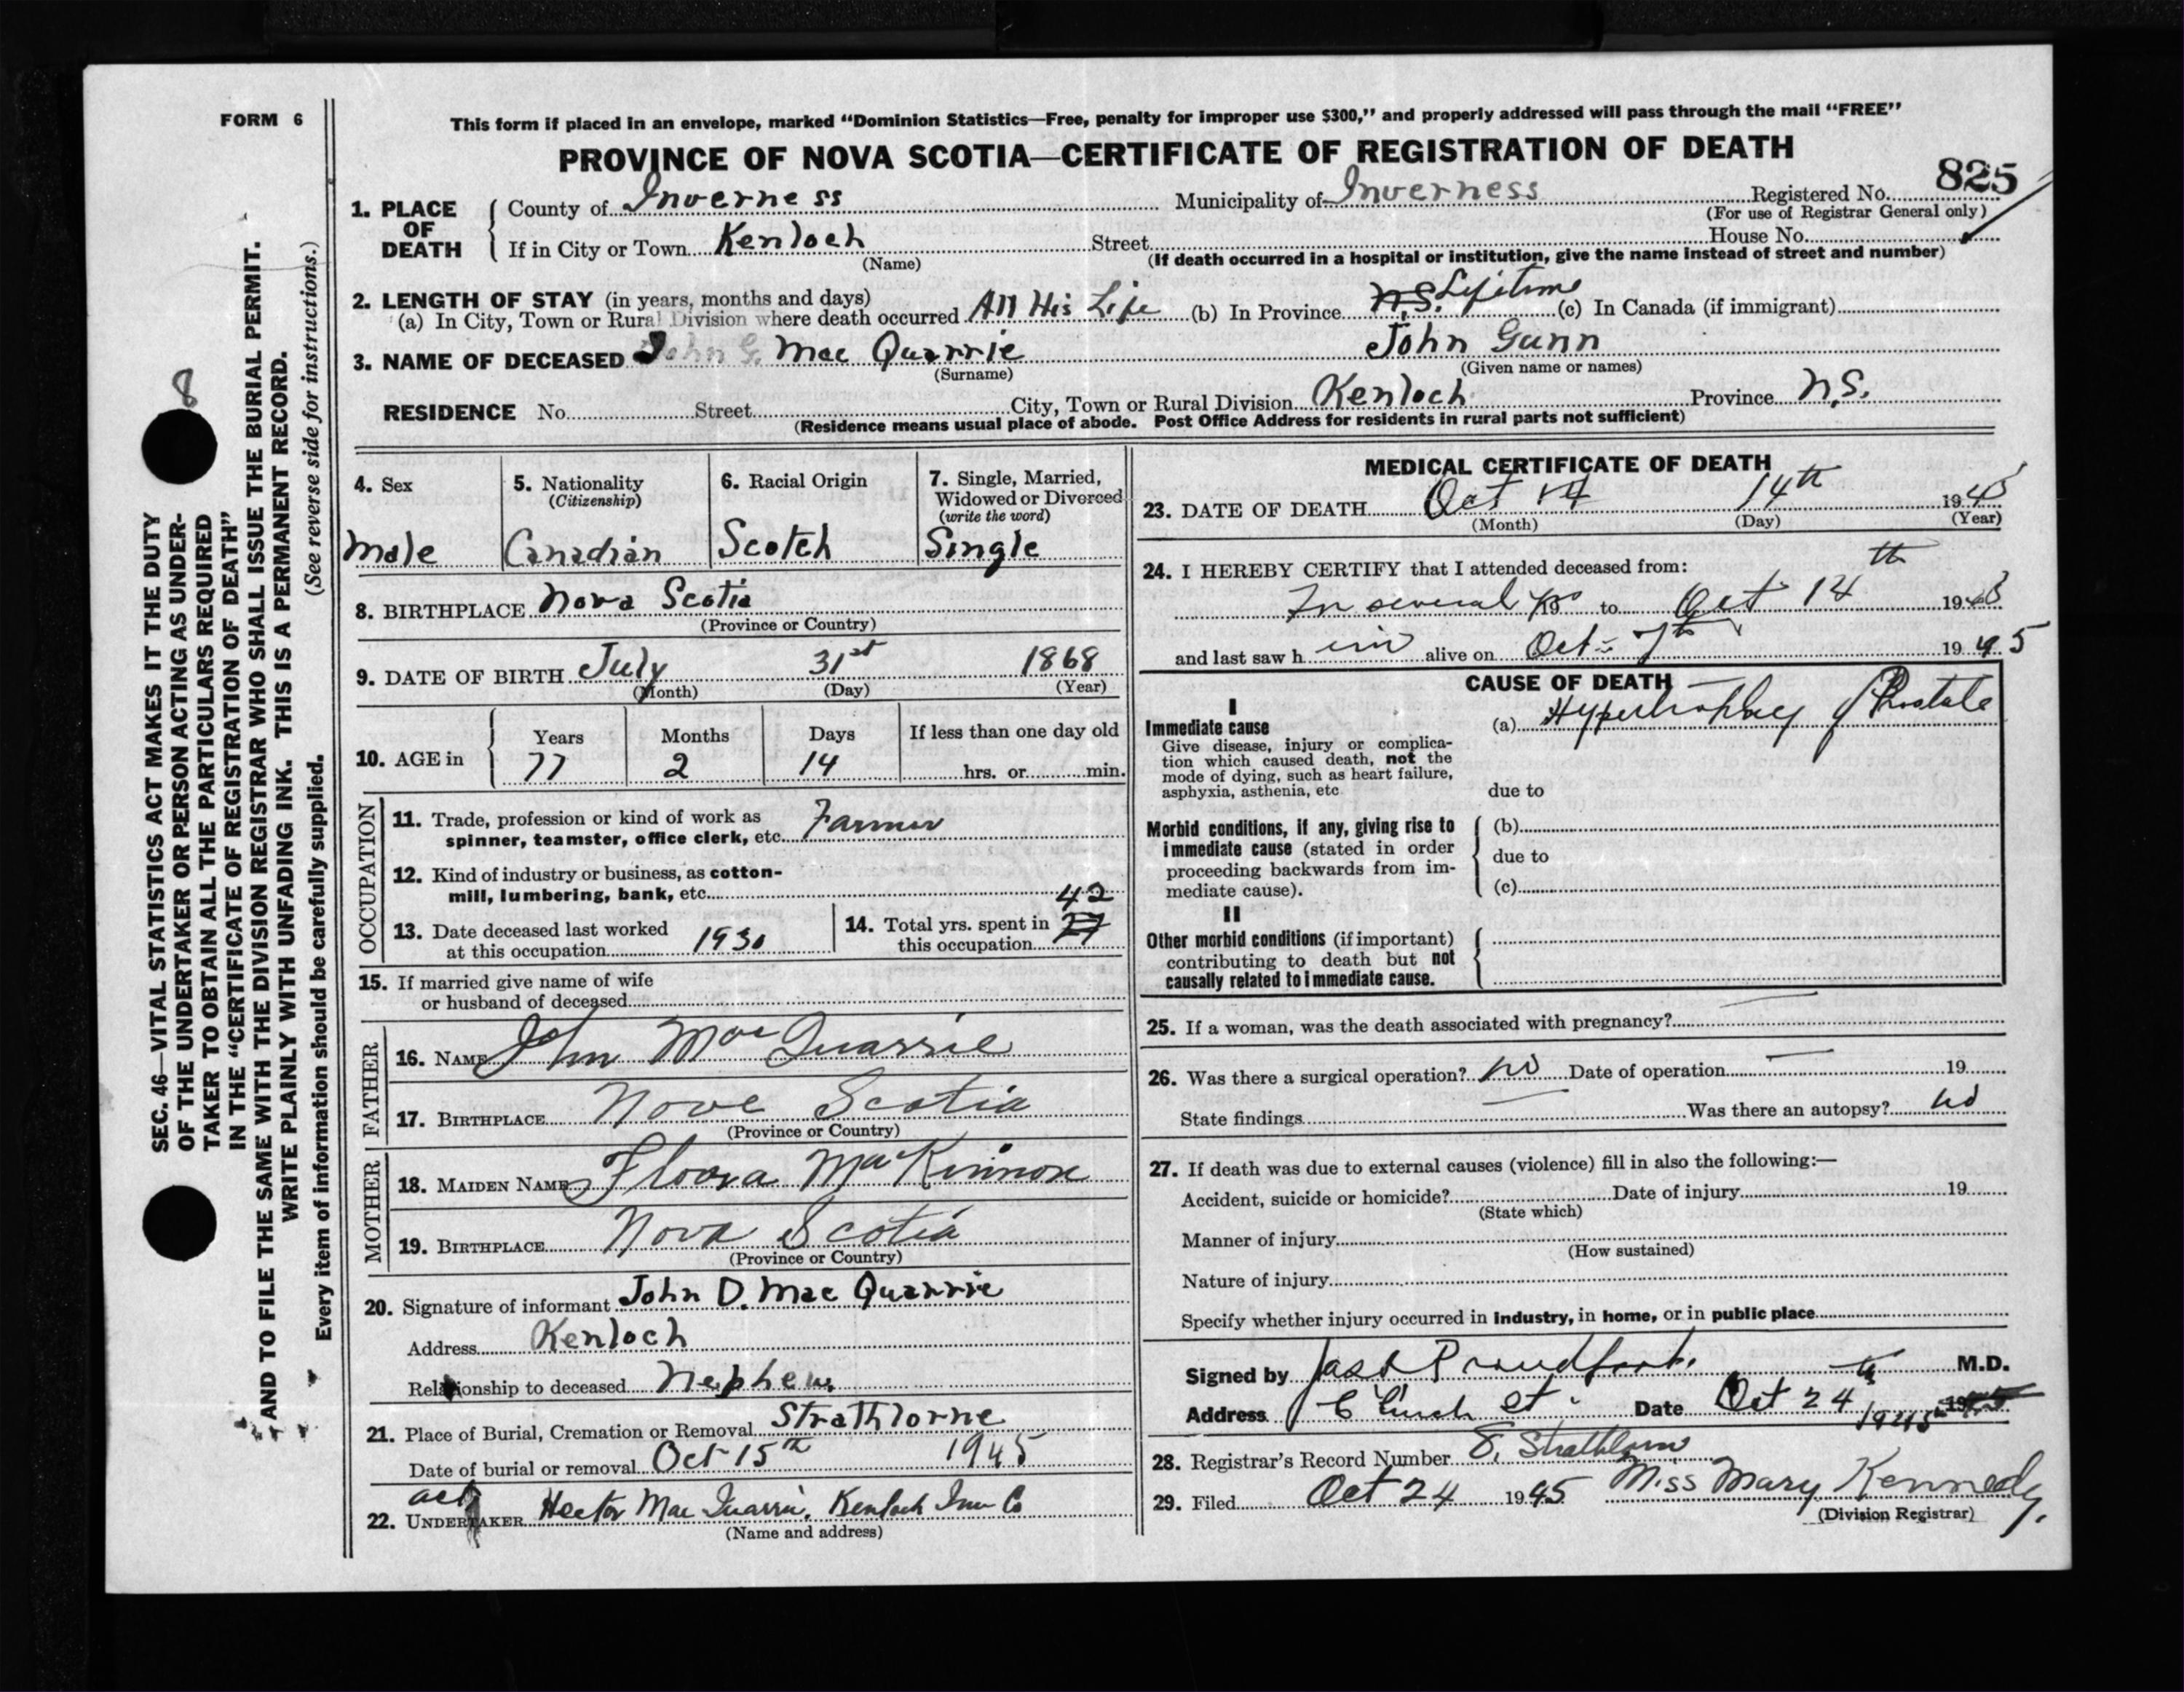 FORM 6
This form if placed in an envelope, marked “Dominion Statistics—Free, penalty for improper use $300,” and properly addressed will pass through the mail “FREE”
PROVINCE OF NOVA SCOTIA—CERTIFICATE OF REGISTRATION OF DEATH
825
1. PLACE OF DEATH
County of Inverness Municipality of Inverness Registered No.
(For use of Registrar General only)
If in City or Town Kenloch Street House No.
(Name) (If death occurred in a hospital or institution, give the name instead of street and number)
2. LENGTH OF STAY (in years, months and days)
(a) In City, Town or Rural Division where death occurred All His Life (b) In Province N.S. Lifetime (c) In Canada (if immigrant)
3. NAME OF DECEASED John G. Mac Quarrie John Gunn
(Surname) (Given name or names)
RESIDENCE No. Street City, Town or Rural Division Kenloch Province N.S.
(Residence means usual place of abode. Post Office Address for residents in rural parts not sufficient)
4. Sex
Male
5. Nationality
(Citizenship)
Canadian
6. Racial Origin
Scotch
7. Single, Married,
Widowed or Divorced
(write the word)
Single
8. BIRTHPLACE Nova Scotia
(Province or Country)
9. DATE OF BIRTH July 31st 1868
(Month) (Day) (Year)
10. AGE in
Years Months Days If less than one day old
77 2 14 hrs. or min.
OCCUPATION
11. Trade, profession or kind of work as
spinner, teamster, office clerk, etc. Farmer
12. Kind of industry or business, as cotton-
mill, lumbering, bank, etc.
13. Date deceased last worked
at this occupation 1930
42
14. Total yrs. spent in
this occupation 27
15. If married give name of wife
or husband of deceased
FATHER
16. NAME John Mac Quarrie
17. BIRTHPLACE Nove Scotia
(Province or Country)
MOTHER
18. MAIDEN NAME Floora Mac Kinnon
19. BIRTHPLACE Nova Scotia
(Province or Country)
20. Signature of informant John D. Mac Quarrie
Address Kenloch
Relationship to deceased Nephew
21. Place of Burial, Cremation or Removal Strathlorne
Date of burial or removal Oct 15th 1945
act
22. UNDERTAKER Hector Mac Quarrie, Kenloch Inv Co
(Name and address)
MEDICAL CERTIFICATE OF DEATH
23. DATE OF DEATH Oct 14 14th 1945
(Month) (Day) (Year)
24. I HEREBY CERTIFY that I attended deceased from:
several to Oct 14th 194
and last saw h im alive on Oct 7th 1945
CAUSE OF DEATH
I
Immediate cause (a) Hypertrophey of Prostate
Give disease, injury or complica-
tion which caused death, not the
mode of dying, such as heart failure,
asphyxia, asthenia, etc. due to
Morbid conditions, if any, giving rise to (b)
immediate cause (stated in order
proceeding backwards from im- due to
mediate cause). (c)
II
Other morbid conditions (if important)
contributing to death but not
causally related to immediate cause.
25. If a woman, was the death associated with pregnancy?
26. Was there a surgical operation? no Date of operation 19
State findings Was there an autopsy? no
27. If death was due to external causes (violence) fill in also the following:—
Accident, suicide or homicide? Date of injury 19
(State which)
Manner of injury
(How sustained)
Nature of injury
Specify whether injury occurred in Industry, in home, or in public place
Signed by Jas Proudfoot. M.D.
Address Church St. Date Oct 24th 1945
28. Registrar's Record Number 8, Strathlorne
29. Filed Oct 24 1945 Miss Mary Kennedy.
(Division Registrar)
8
SEC. 46—VITAL STATISTICS ACT MAKES IT THE DUTY
OF THE UNDERTAKER OR PERSON ACTING AS UNDER-
TAKER TO OBTAIN ALL THE PARTICULARS REQUIRED
IN THE “CERTIFICATE OF REGISTRATION OF DEATH”
AND TO FILE THE SAME WITH THE DIVISION REGISTRAR WHO SHALL ISSUE THE BURIAL PERMIT.
WRITE PLAINLY WITH UNFADING INK. THIS IS A PERMANENT RECORD.
Every item of information should be carefully supplied. (See reverse side for instructions.)